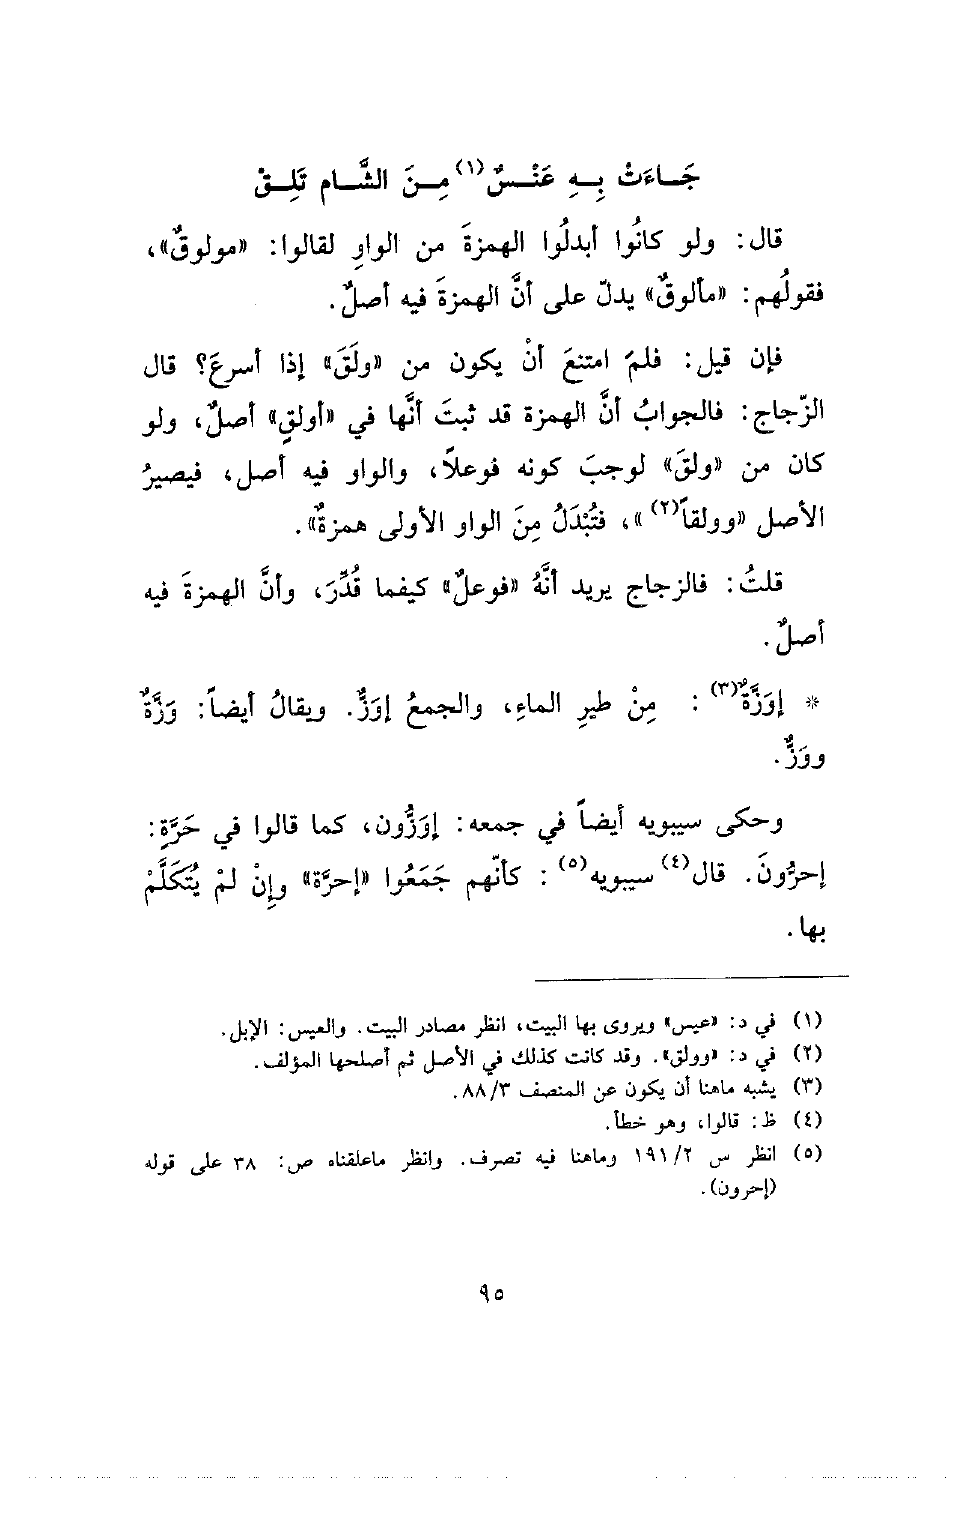 جَـاءَتْ بِـهِ عَنْـسٌ(١) مِـنَ الشَّـام تَلِـقْ
قال: ولو كانُوا أبدلُوا الهمزةَ من الواوِ لقالوا: «مولوقٌ»،
فقولُهم: «مألوقٌ» يدلّ على أنَّ الهمزةَ فيه أصلٌ.
فإن قيل: فلمَ امتنعَ أنْ يكون من «ولَقَ» إذا أسرعَ؟ قال
الزّجاج: فالجوابُ أنَّ الهمزة قد ثبتَ أنَّها في «أولقٍ» أصلٌ، ولو
كان من «ولقَ» لوجبَ كونه فوعلاً، والواو فيه أصل، فيصيرُ
الأصل «وولقاً(٢)»، فتُبْدَلُ مِنَ الواو الأولى همزةٌ».
قلتُ: فالزجاج يريد أنَّهُ «فوعلٌ» كيفما قُدِّرَ، وأنَّ الهمزةَ فيه
أصلٌ.
* إوَزَّةٌ(٣): مِنْ طيرِ الماءِ، والجمعُ إوَزٌّ. ويقالُ أيضاً: وَزَّةٌ
ووَزٌّ.
وحكى سيبويه أيضاً في جمعه: إوَزُّون، كما قالوا في حَرَّةٍ:
إحرُّونَ. قال(٤) سيبويه(٥): كأنّهم جَمَعُوا «إحرَّة» وإِنْ لمْ يُتَكلَّمْ
بها.
(١) في د: «عيس» ويروى بها البيت، انظر مصادر البيت. والعيس: الإبل.
(٢) في د: «وولق». وقد كانت كذلك في الأصل ثم أصلحها المؤلف.
(٣) يشبه ماهنا أن يكون عن المنصف ٨٨/٣.
(٤) ظ: قالوا، وهو خطأ.
(٥) انظر س ١٩١/٢ وماهنا فيه تصرف. وانظر ماعلقناه ص: ٣٨ على قوله
(إحرون).
٩٥